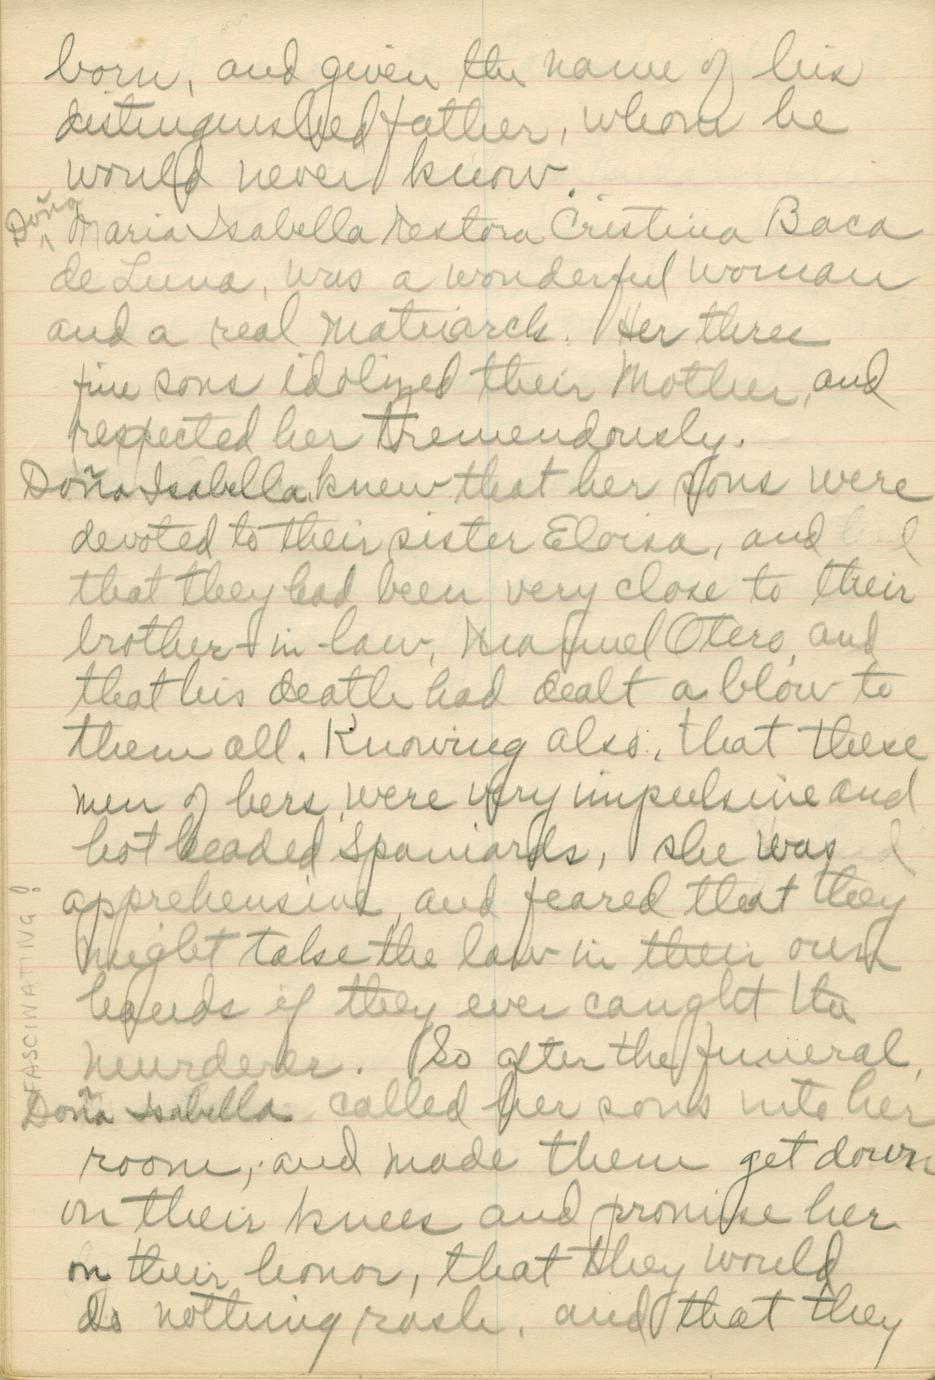 born, and given the name of his
distinguished father, whom he
would never know.
Doña
^ Maria Isabella Nestora Cristina Baca
de Luna, was a wonderful woman
and a real Matriarch. Her three
fine sons idolized their Mother, and
respected her tremendously.
Doña Isabella, knew that her sons were
devoted to their sister Eloisa, and
that they had been very close to their
brother-in-law, Manuel Otero, and
that his death had dealt a blow to
them all. Knowing also, that these
men of hers, were very impulsive and
hot headed Spaniards, she was
apprehensive, and feared that they
might take the law in their own
hands if they ever caught the
murderer. So after the funeral,
Doña Isabella called her sons into her
room, and made them get down
on their knees and promise her
on their honor, that they would
do nothing rash, and that they
FASCINATING!